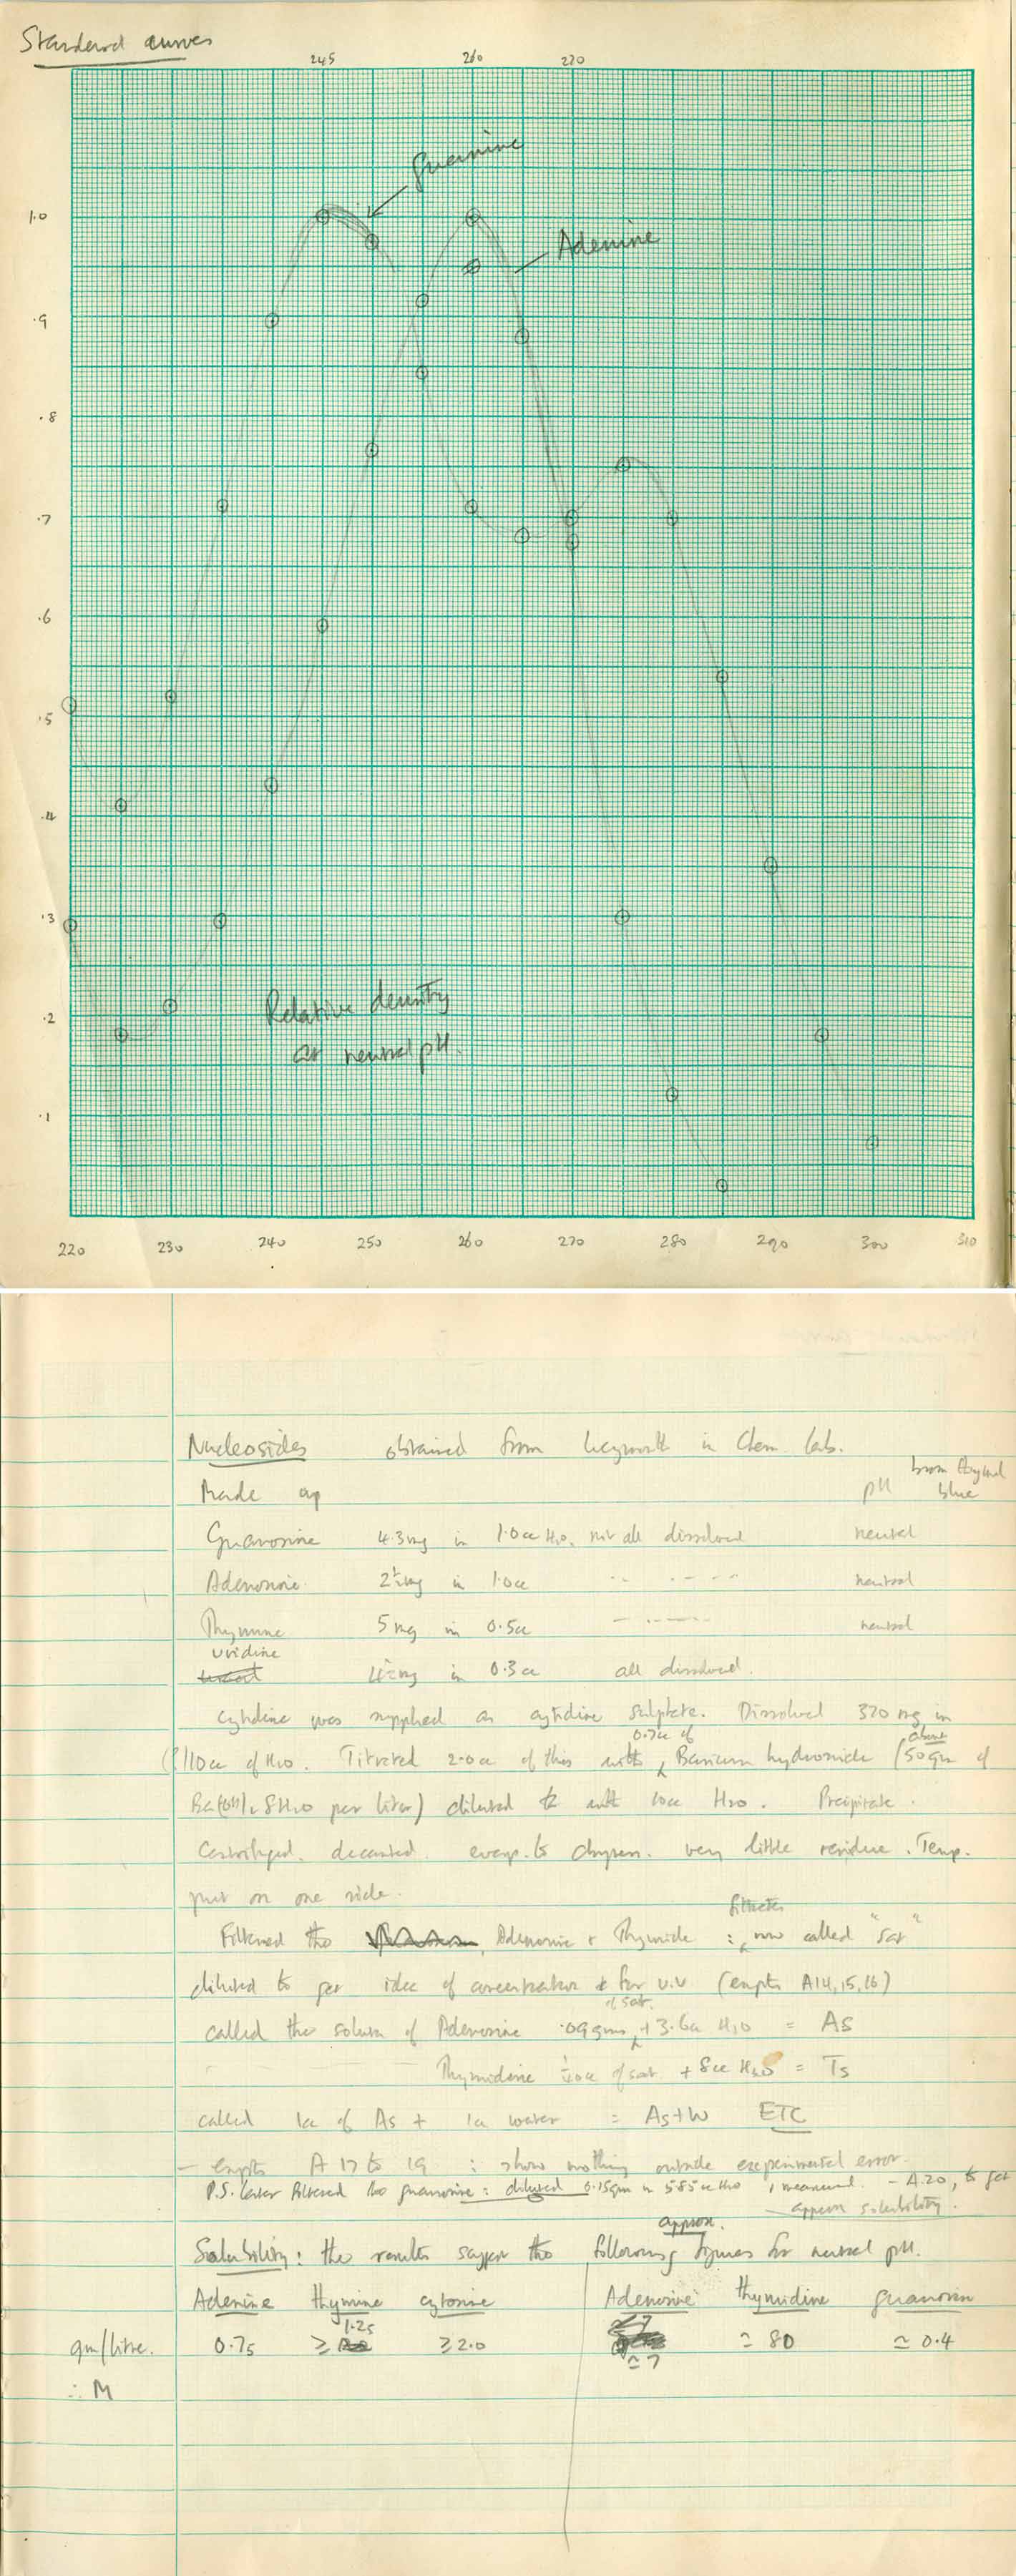 Standard curves
245 260 270
Guanine
1.0
Adenine
.9
.8
.7
.6
.5
.4
.3
Relative density
.2
at neutral pH.
.1
220 230 240 250 260 270 280 290 300 310
Nucleosides obtained from in Chem. Lab.
Made up pH brom thymol blue
Guanosine 4.3mg in 1.0cc H2O. not all dissolved neutral
Adenosine 2½mg in 1.0cc " " neutral
Thymine 5mg in 0.5cc neutral
uridine
4½mg in 0.3cc all dissolved.
Cytidine was supplied as cytidine sulphate. Dissolved 320 mg in
0.7cc of about
(?) 10cc of H2O. Titrated 2.0cc of this with Barium hydroxide (50gm of
Ba(OH)2 8H2O per liter) diluted to with 10cc H2O. Precipitate.
Centrifuged. decanted. evap. to dryness. very little residue. Temp.
put on one side.
filtrates
Filtered the Adenosine + Thymide : now called "sat"
diluted to get idea of concentration & for U.V (expts A14, 15, 16)
of sat.
called the solution of Adenosine .09gms + 3.6cc H2O = As
Thymidine cc of sat + 8cc H2O = Ts
called 1cc of As + 1cc water = As+W ETC
- expts A 17 to 19 : show nothing outside experimental error.
P.S. later filtered the guanosine : diluted 0.15gm in 5.85cc H2O, measured. - A.20, to get
approx solubility.
approx.
Solubility : the results suggest the following figures for neutral pH.
Adenine thymine cytosine Adenosine thymidine guanosine
1.25
gm/litre. 0.75 ≥ ≥2.0 ≃ 7 ≃ 80 ≃ 0.4
∴ M